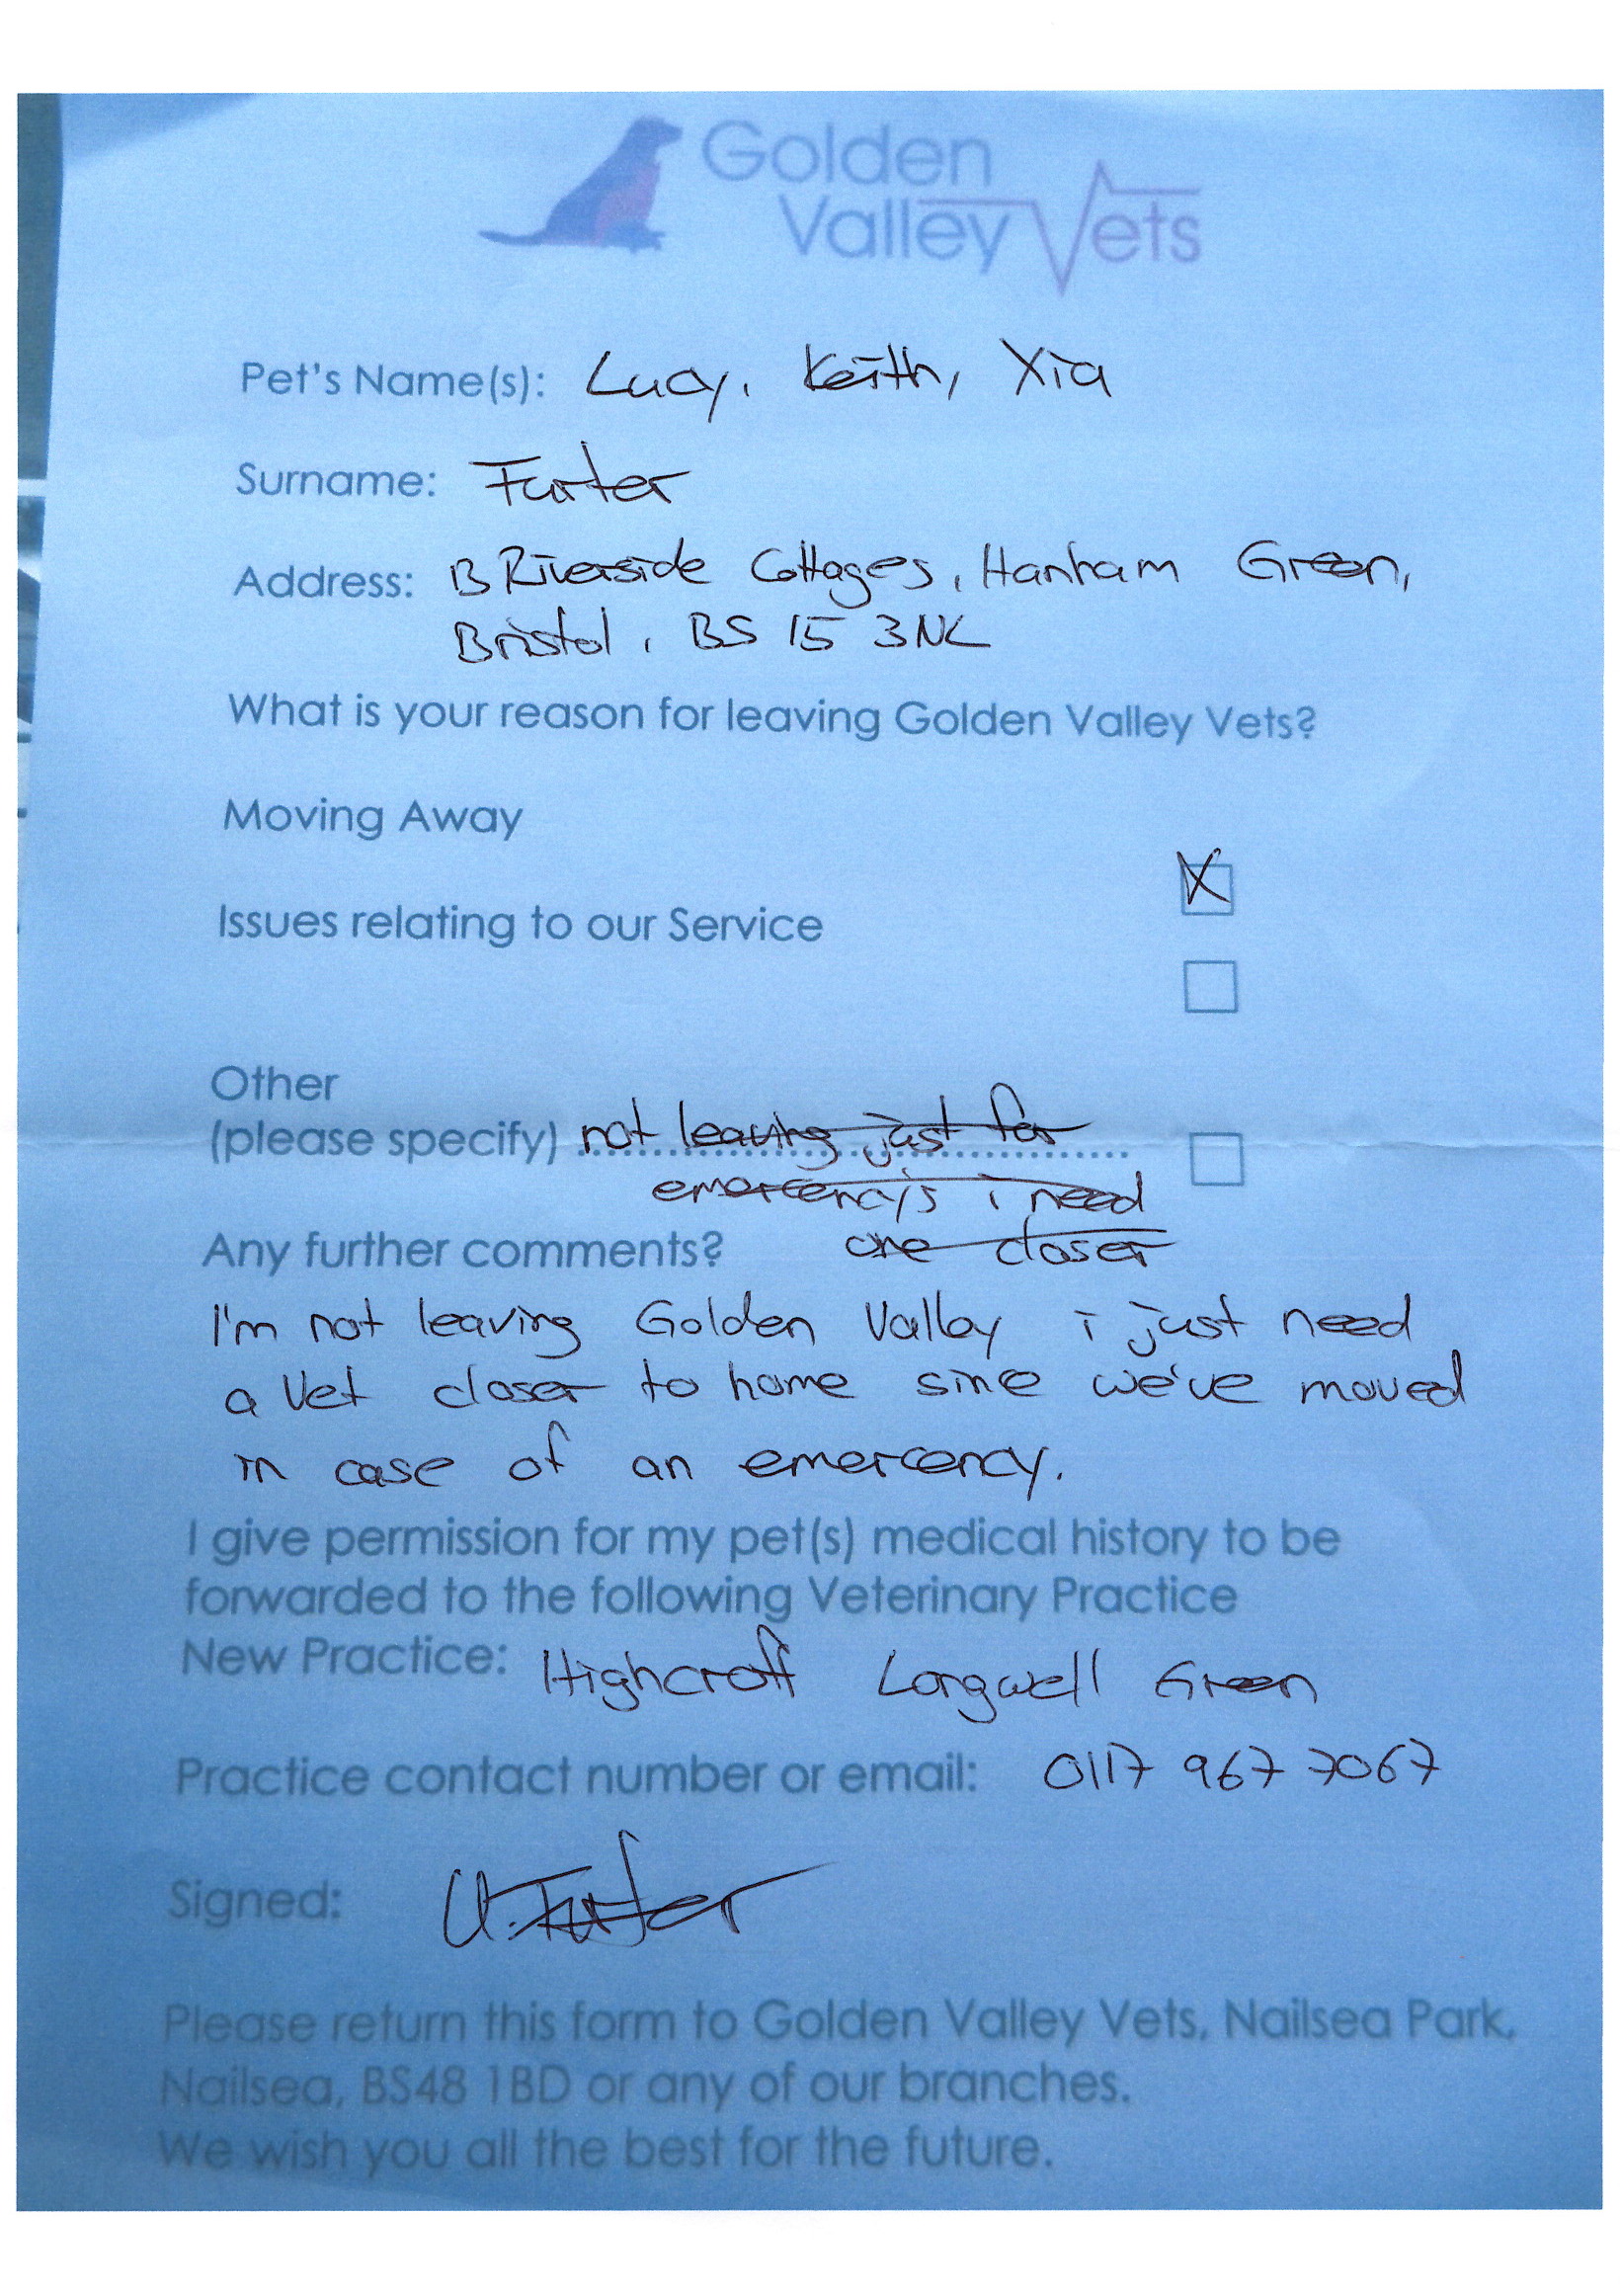 Golden
Valley Vets
Pet's Name(s): Lucy, Keith, Xia
Surname: Furter
Address: B Riverside Cottages, Hanham Green,
Bristol, BS 15 3NL
What is your reason for leaving Golden Valley Vets?
Moving Away
X
Issues relating to our Service
Other
(please specify) not leaving just for
emercencys i need
Any further comments? one closer
I'm not leaving Golden Valley i just need
a Vet closer to home sine we've moved
in case of an emercency.
I give permission for my pet(s) medical history to be
forwarded to the following Veterinary Practice
New Practice: Highcroft Longwell Green
Practice contact number or email: 0117 967 7067
Signed: U. Furter
Please return this form to Golden Valley Vets, Nailsea Park,
Nailsea, BS48 1BD or any of our branches.
We wish you all the best for the future.